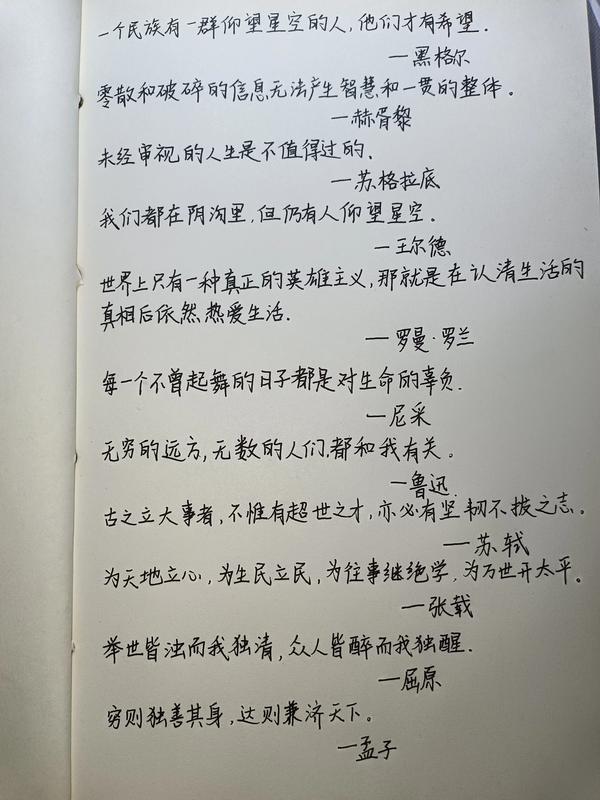 一个民族有一群仰望星空的人，他们才有希望．
—黑格尔
零散和破碎的信息无法产生智慧和一贯的整体。
—赫胥黎
未经审视的人生是不值得过的．
—苏格拉底
我们都在阴沟里，但仍有人仰望星空．
—王尔德
世界上只有一种真正的英雄主义，那就是在认清生活的
真相后依然热爱生活．
—罗曼·罗兰
每一个不曾起舞的日子都是对生命的辜负．
—尼采
无穷的远方，无数的人们．都和我有关。
—鲁迅
古之立大事者，不惟有超世之才，亦必有坚韧不拔之志。
—苏轼
为天地立心，为生民立民，为往事继绝学，为万世开太平。
—张载
举世皆浊而我独清，众人皆醉而我独醒．
—屈原
穷则独善其身，达则兼济天下。
—孟子